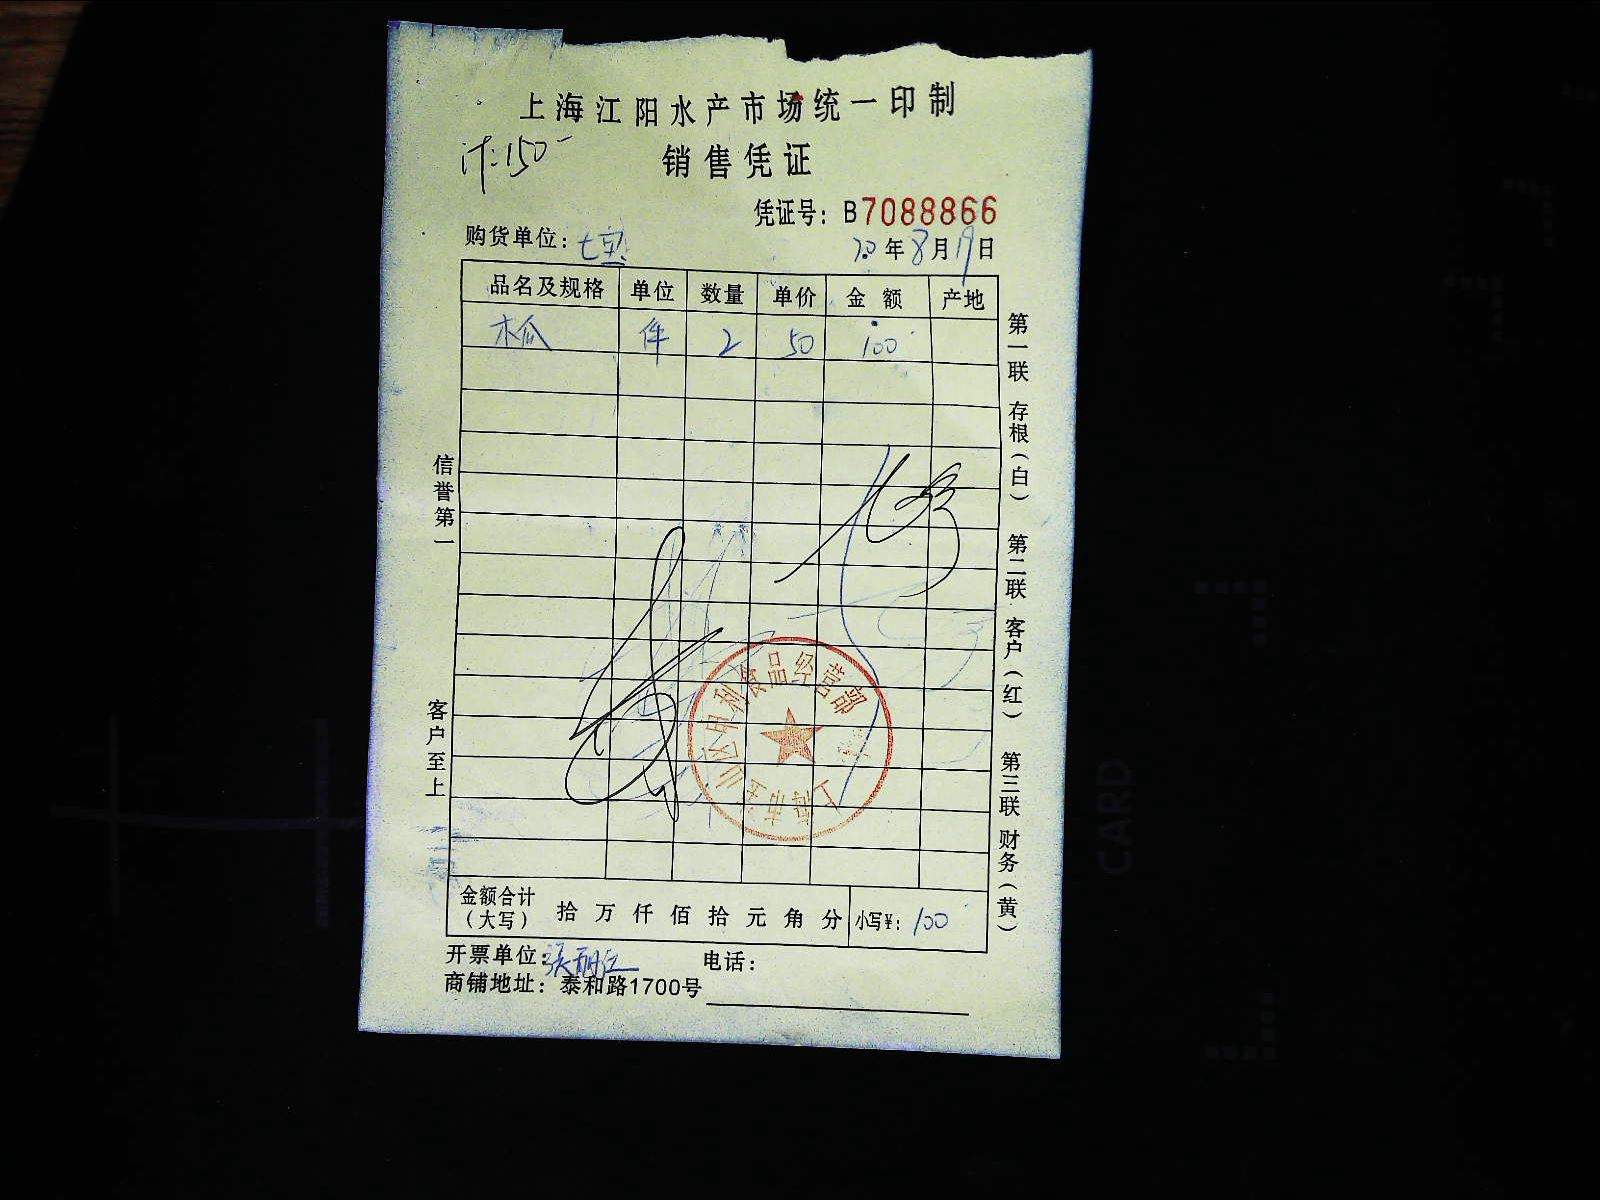 上海江阳水产市场统一印制
计:150-
销售凭证
凭证号：B7088866
购货单位：七宝
20年8月19日
品名及规格 单位 数量 单价 金额 产地
木瓜 件 2 50 100
信誉第一
客户至上
第一联 存根（白） 第二联 客户（红） 第三联 财务（黄）
食品经营部
上海市宝山区
金额合计（大写） 拾 万 仟 佰 拾 元 角 分 小写¥：100
开票单位：张丽江
电话：
商铺地址：泰和路1700号
CARD